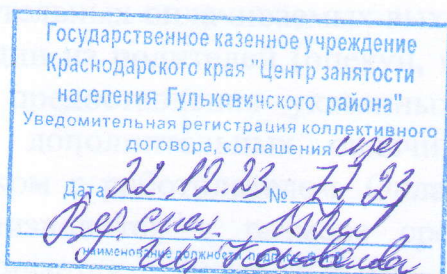 Государственное казенное учреждение
Краснодарского края "Центр занятости
населения Гулькевичского района"
Уведомительная регистрация коллективного
договора, соглашения
Дата 22.12.23 № 77-23
Вед. спец.
наименование должности, подпись
Коновалова